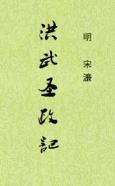 明 宋濂
洪武圣政記